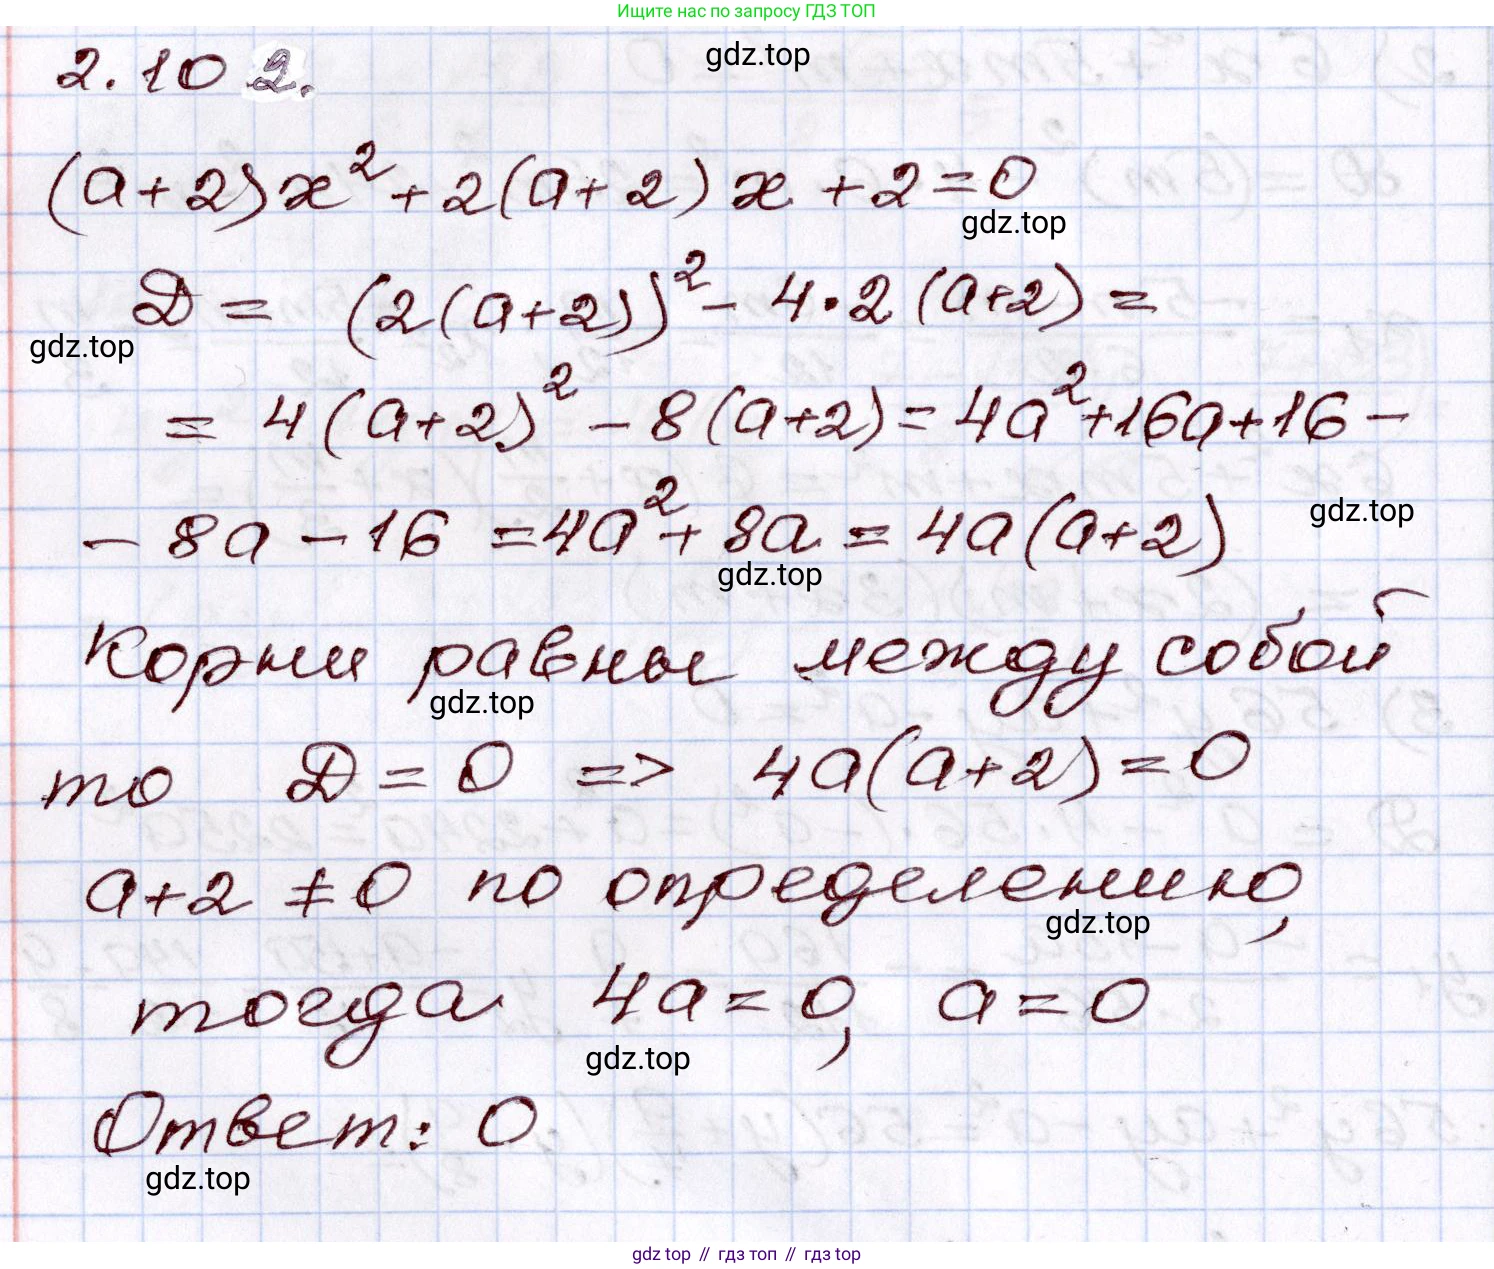 Ищите нас по запросу ГДЗ ТОП
2.10 2.
gdz.top
(a+2)x²+2(a+2)x+2=0
gdz.top
D = (2(a+2))²-4·2(a+2)=
gdz.top
= 4(a+2)²-8(a+2)=4a²+16a+16-
gdz.top
-8a-16=4a²+8a=4a(a+2)
gdz.top
Корни равны между собой
gdz.top
то D=0 => 4a(a+2)=0
a+2≠0 по определению,
gdz.top
тогда 4a=0, a=0
gdz.top
Ответ: 0
gdz.top
gdz top // гдз топ // гдз top